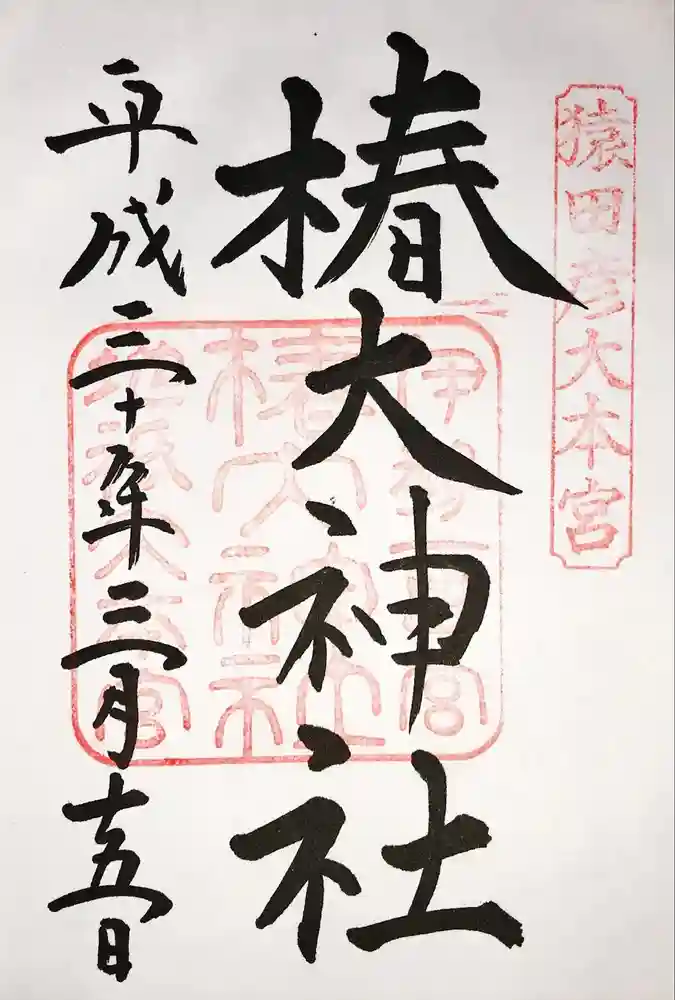 猿田彦大本宮
椿大神社
平成三十年三月十五日
伊勢一宮
椿大神社